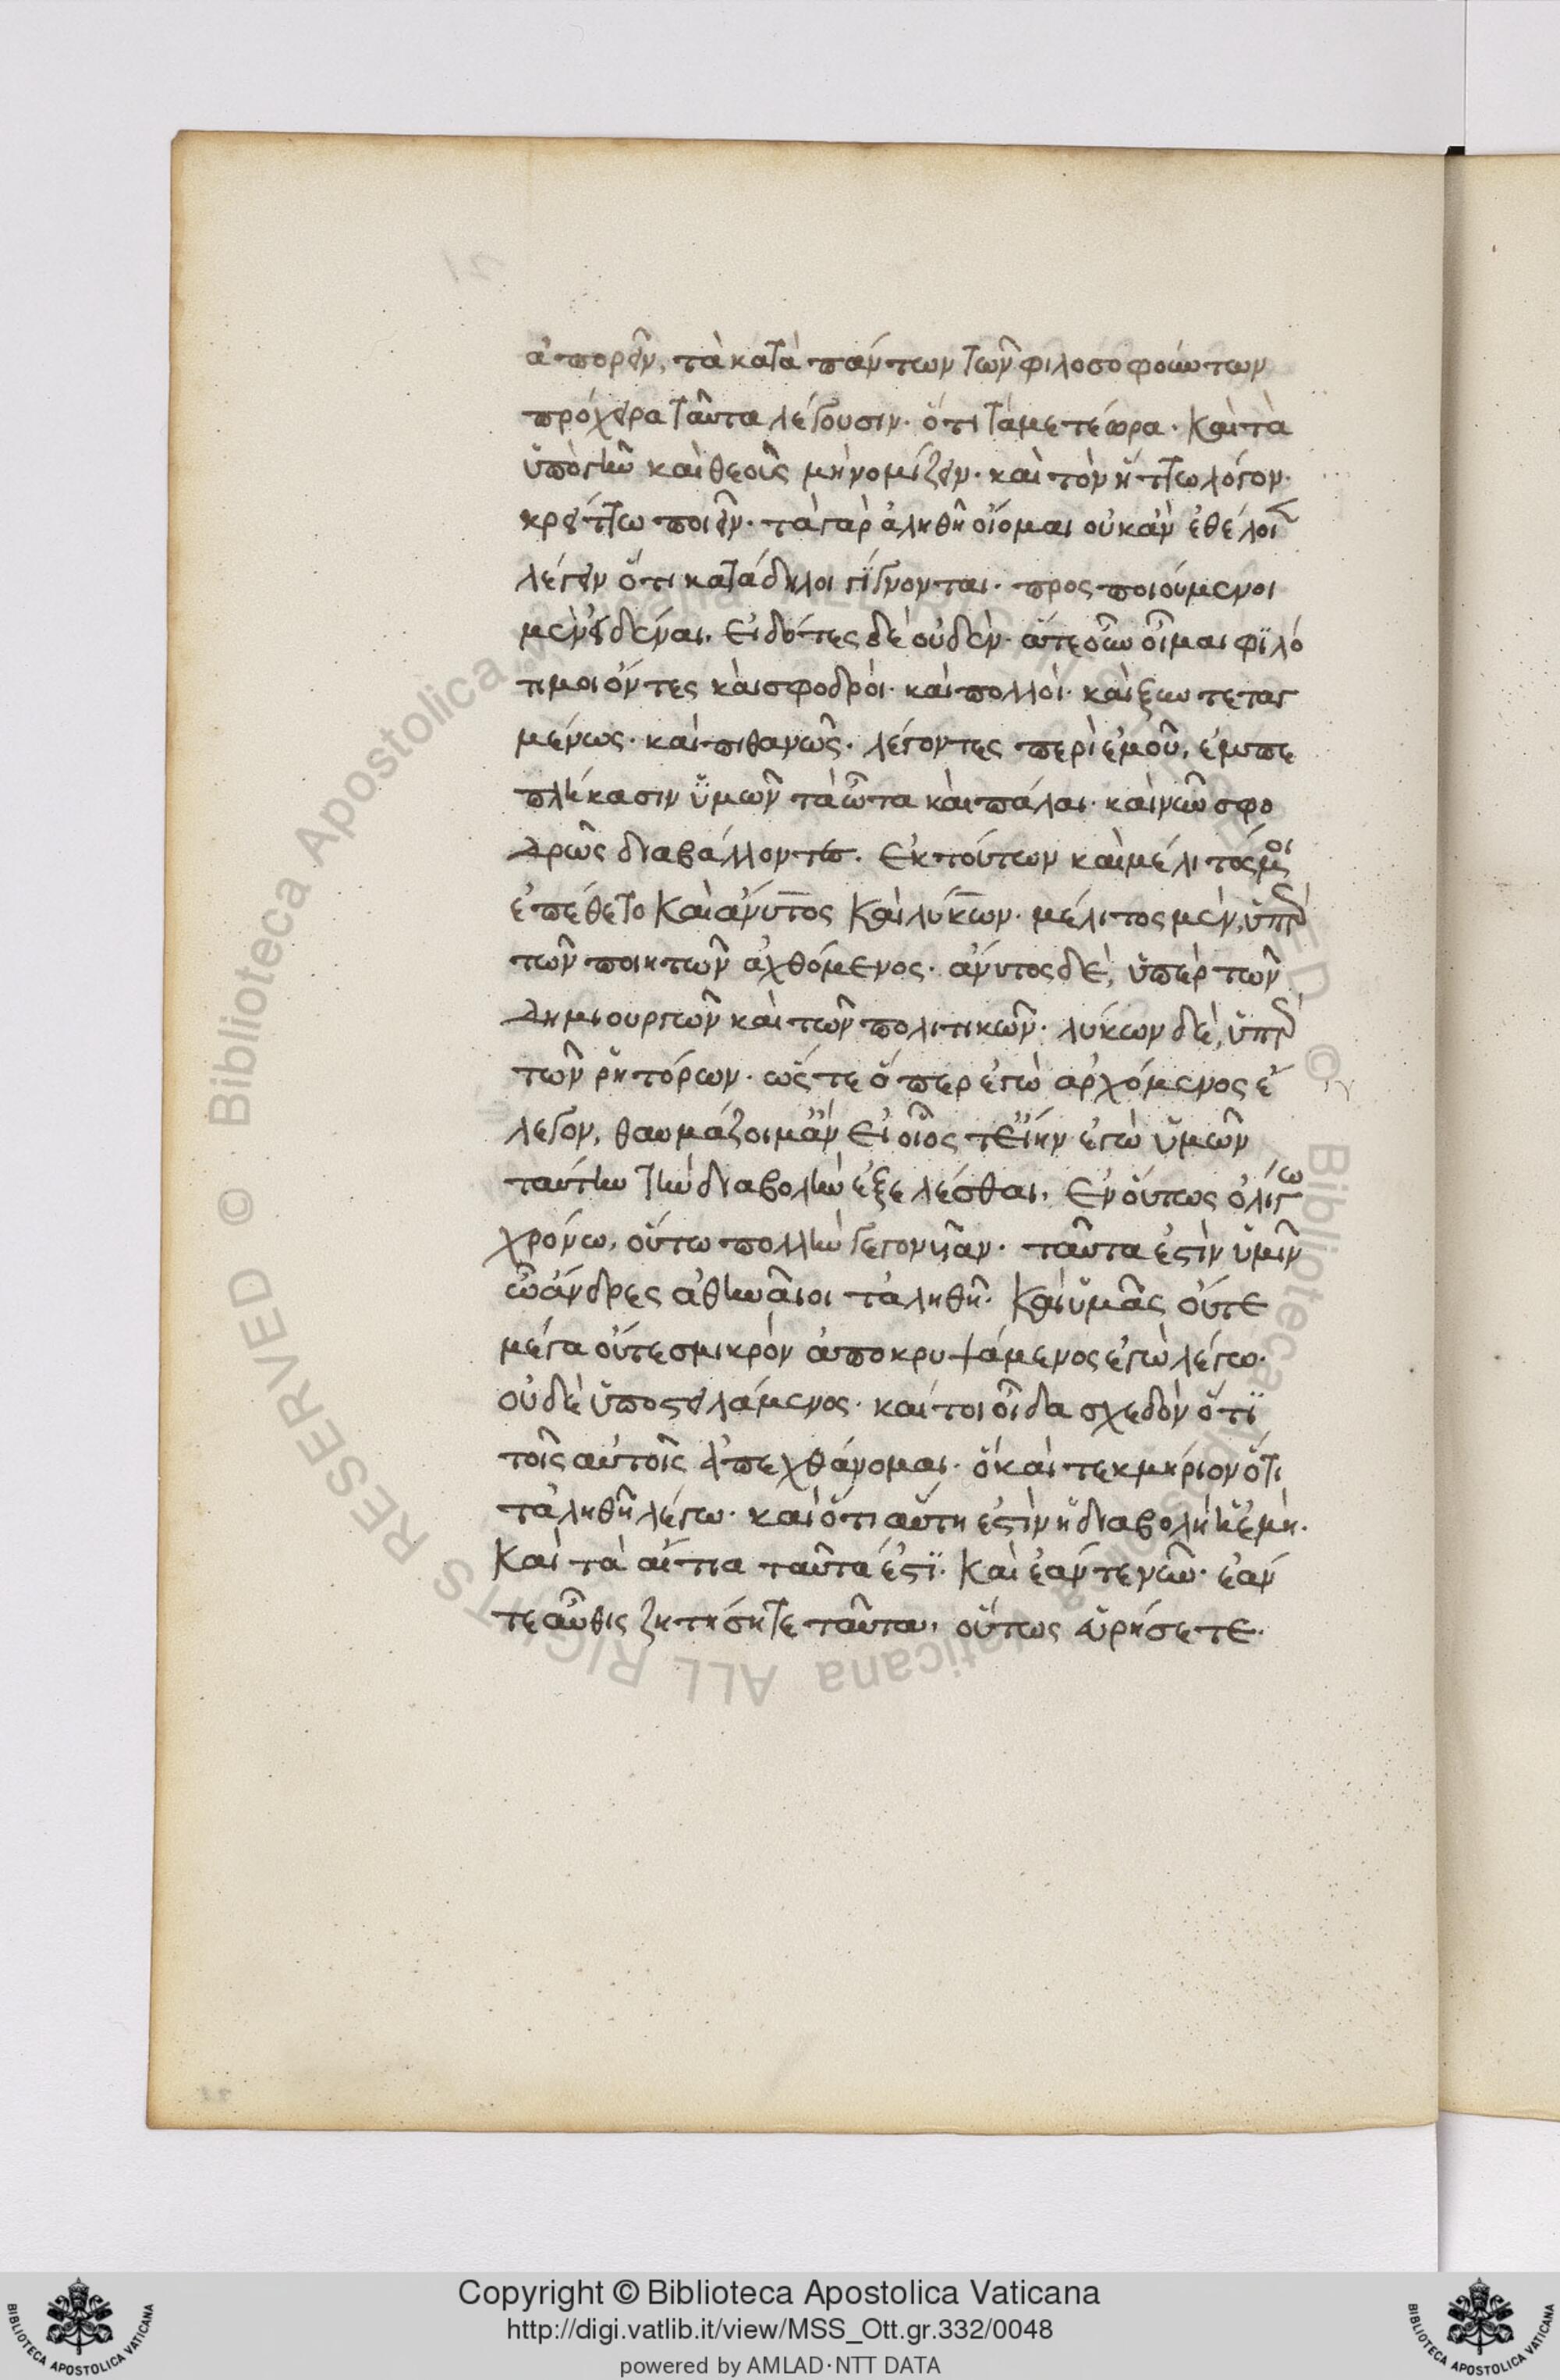 ἀπορεῖν, τὰ κατὰ πάντων τῶν φιλοσοφούντων
πρόχειρα ταῦτα λέγουσιν· ὅτι τὰ μετέωρα· καὶ τὰ
ὑπὸ γῆν καὶ θεοὺς μὴ νομίζειν· καὶ τὸν ἥττω λόγον·
κρείττω ποιεῖν· τὰ γὰρ ἀληθῆ οἴομαι οὐκ ἂν ἐθέλοιεν
λέγειν ὅτι κατάδηλοι γίγνονται· προσποιούμενοι
μὲν εἰδέναι, εἰδότες δὲ οὐδὲν· ἅτε οὖν οἶμαι φϊλό
τιμοι όντες καὶ σφοδροὶ· καὶ πολλοὶ· καὶ ξυντεταγ
μένως· καὶ πιθανῶς· λέγοντες περὶ ἐμοῦ, ἐμπε
πλήκασιν ὑμῶν τὰ ὦτα καὶ πάλαι· καὶ νῦν σφο
δρῶς διαβάλλοντες. Ἐκ τούτων καὶ μέλιτός μοι
ἐπέθετο καὶ ἄνυτος καὶ λύκων· μέλιτος μὲν, ὑπὲρ
τῶν ποιητῶν ἀχθόμενος· ἄνυτος δὲ, ὑπὲρ τῶν
δημιουργῶν καὶ τῶν πολιτικῶν· λύκων δὲ, ὑπὲρ
τῶν ῥητόρων· ὥστε ὅπερ ἐγὼ ἀρχόμενος ἔ
λεγον, θαυμάζοιμ ἂν εἰ οἷος τ εἴην ἐγὼ ὑμῶν
ταύτην τὴν διαβολὴν ἐξελέσθαι, ἐν οὕτως ὀλίγω
χρόνω, οὕτω πολλὴν γεγονυῖαν· ταῦτα ἐστὶν ὑμῖν
ὦ άνδρες ἀθηναῖοι τἀληθῆ· καὶ ὑμᾶς οὔτε
μέγα οὔτε σμικρὸν ἀποκρυψάμενος ἐγὼ λέγω·
οὐδὲ ὑποστειλάμενος· καίτοι οἶδα σχεδὸν ὅτϊ
τοῖς αὐτοῖς ἀπεχθάνομαι· ὃ καὶ τεκμήριον ὅτι
τἀληθῆ λέγω· καὶ ὅτι αὕτη ἐστὶν ἡ διαβολὴ ἡ ἐμὴ·
Καὶ τὰ αἴτια ταῦτά ἐστϊ· καὶ ἐάν τε νῦν· ἐάν
τε αὖθις ζητήσητε ταῦτα, οὕτως εὑρήσετε·
© Biblioteca Apostolica Vaticana ALL RIGHTS RESERVED
Copyright © Biblioteca Apostolica Vaticana
http://digi.vatlib.it/view/MSS_Ott.gr.332/0048
powered by AMLAD·NTT DATA
BIBLIOTECA APOSTOLICA VATICANA
BIBLIOTECA APOSTOLICA VATICANA